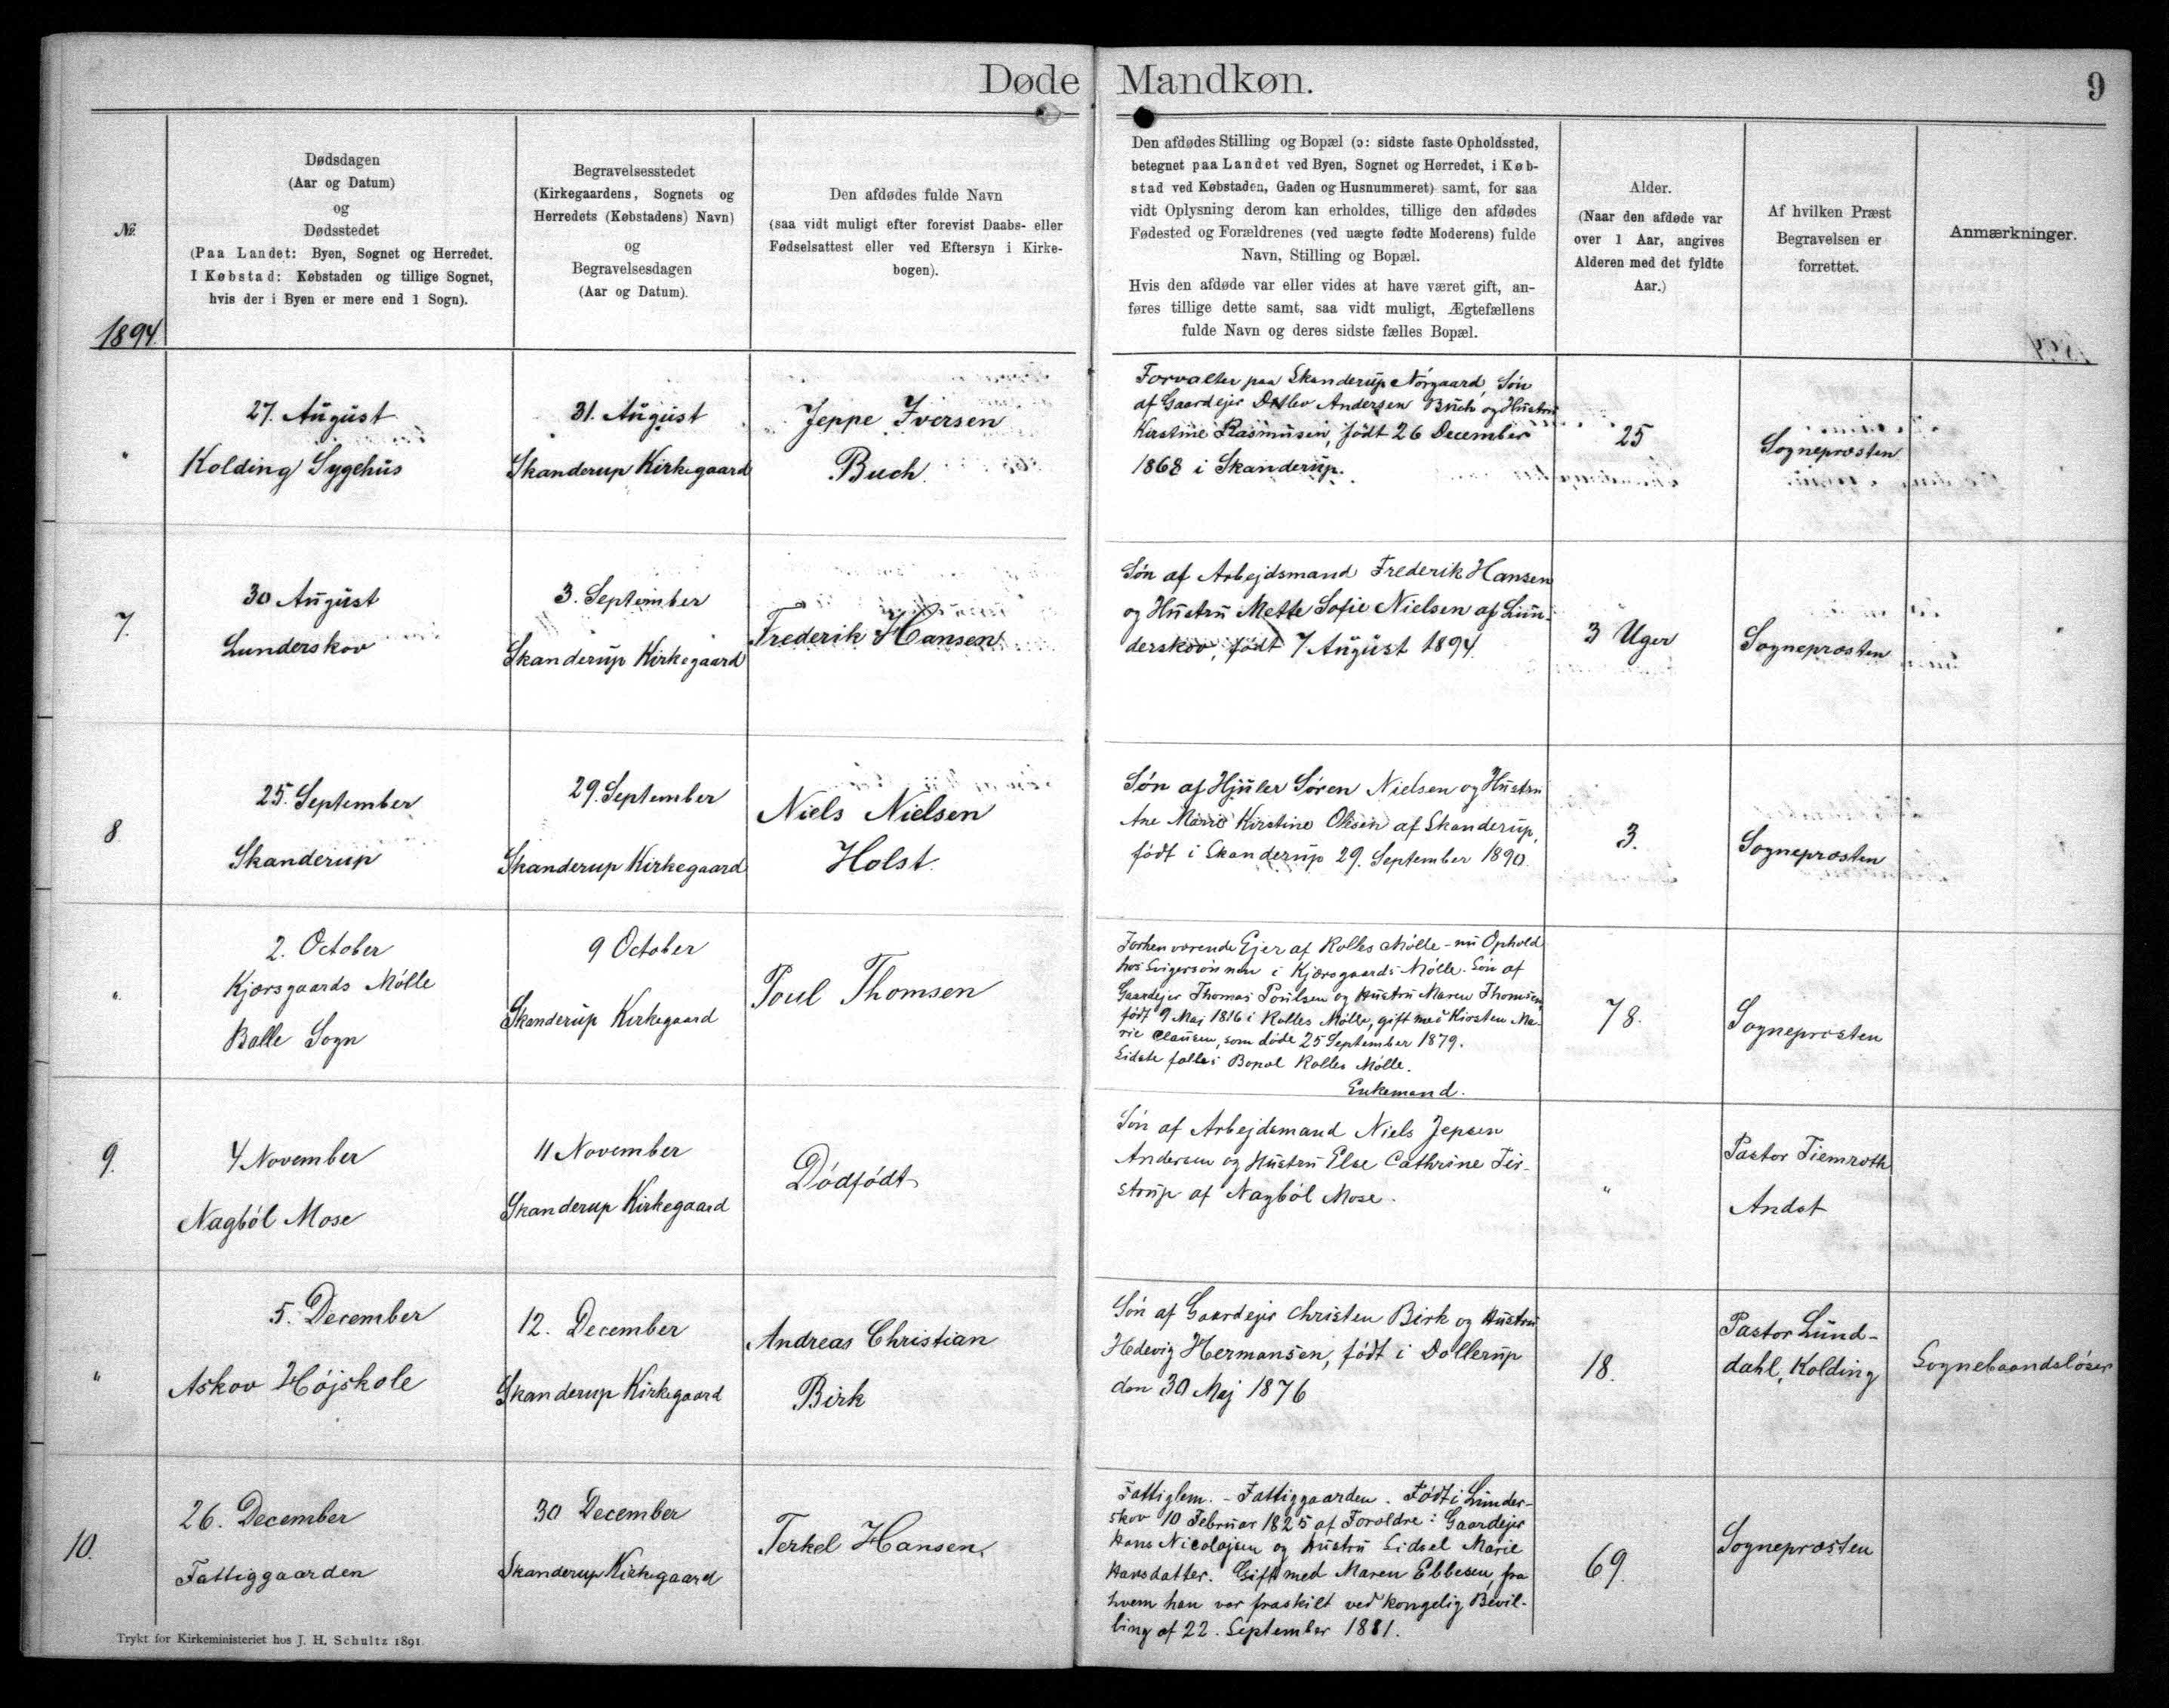 Døde Mandkøn.
9
No.
1894.
Dødsdagen
(Aar og Datum)
og
Dødsstedet
(Paa Landet: Byen, Sognet og Herredet.
I Købstad: Købstaden og tillige Sognet,
hvis der i Byen er mere end 1 Sogn).
Begravelsesstedet
(Kirkegaardens, Sognets og
Herredets (Købstadens) Navn)
og
Begravelsesdagen
(Aar og Datum).
Den afdødes fulde Navn
(saa vidt muligt efter forevist Daabs- eller
Fødselsattest eller ved Eftersyn i Kirke-
bogen).
Den afdødes Stilling og Bopæl (ɔ: sidste faste Opholdssted,
betegnet paa Landet ved Byen, Sognet og Herredet, i Køb-
stad ved Købstaden, Gaden og Husnummeret) samt, for saa
vidt Oplysning derom kan erholdes, tillige den afdødes
Fødested og Forældrenes (ved uægte fødte Moderens) fulde
Navn, Stilling og Bopæl.
Hvis den afdøde var eller vides at have været gift, an-
føres tillige dette samt, saa vidt muligt, Ægtefællens
fulde Navn og deres sidste fælles Bopæl.
Alder.
(Naar den afdøde var
over 1 Aar, angives
Alderen med det fyldte
Aar.)
Af hvilken Præst
Begravelsen er
forrettet.
Anmærkninger.
"
27. August
Kolding Sygehus
31. August
Skanderup Kirkegaard
Jeppe Iversen
Buch.
Forvalter paa Skanderup Nørgaard, Søn
af Gaardejer Detlev Andersen Buch og Hustru
Kirstine Rasmusen, født 26 December
1868 i Skanderup.
25
Sognepræsten
7.
30 August
Lunderskov
3. September
Skanderup Kirkegaard
Frederik Hansen
Søn af Arbejdsmand Frederik Hansen
og Hustru Mette Sofie Nielsen af Lun-
derskov, født 7 August 1894.
3 Uger
Sognepræsten
8.
25. September
Skanderup
29. September
Skanderup Kirkegaard
Niels Nielsen
Holst.
Søn af Hjuler Søren Nielsen og Hustru
Ane Marie Kirstine Olesen af Skanderup,
født i Skanderup 29. September 1890.
3.
Sognepræsten
"
2. October
Kjærsgaards Mølle
Balle Sogn
9 October
Skanderup Kirkegaard
Poul Thomsen
Forhenværende Ejer af Rolles Mølle - nu Ophold
hos Svigersønnen i Kjærsgaards Mølle. Søn af
Gaardejer Thomas Poulsen og Hustru Maren Thomsen,
født 9 Maj 1816 i Rolles Mølle, gift med Kirsten Ma-
rie Clausen, som døde 25 September 1879.
Sidste fælles Bopæl Rolles Mølle.
Enkemand.
78.
Sognepræsten
9.
4 November
Nagbøl Mose
11 November
Skanderup Kirkegaard
Dødfødt
Søn af Arbejdsmand Niels Jepsen
Andersen og Hustru Else Cathrine Fir-
strup af Nagbøl Mose.
"
Pastor Fiemroth
Andst
"
5. December
Askov Højskole
12. December
Skanderup Kirkegaard
Andreas Christian
Birk
Søn af Gaardejer Christen Birk og Hustru
Hedevig Hermansen, født i Dollerup
den 30 Maj 1876
18.
Pastor Lund-
dahl, Kolding
Sognebaandsløser
10.
26. December
Fattiggaarden
30 December
Skanderup Kirkegaard
Terkel Hansen.
Fattiglem. - Fattiggaarden. Født i Lunder-
skov 10 Februar 1825 af Forældre: Gaardejer
Hans Nicolajsen og Hustru Sidsel Marie
Hansdatter. Gift med Maren Ebbesen, fra
hvem han var fraskilt ved kongelig Bevil-
ling af 22. September 1881.
69.
Sognepræsten
Trykt for Kirkeministeriet hos J. H. Schultz 1891.